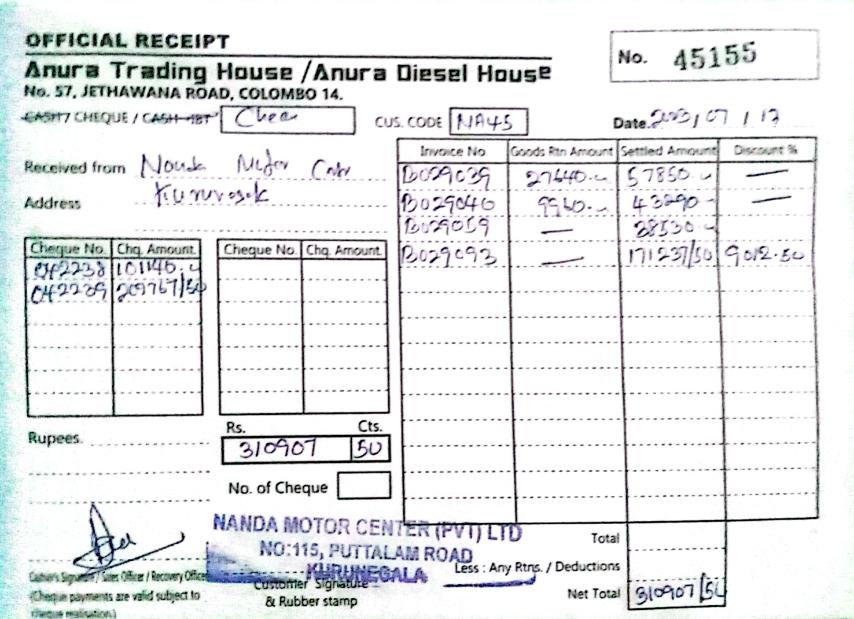 OFFICIAL RECEIPT
No. 45155
Anura Trading House /Anura Diesel House
No. 57, JETHAWANA ROAD, COLOMBO 14.
CASH / CHEQUE / CASH - IBT
CUS. CODE NA45
Date. / 07 / 17
Received from Nanda Motor
Address
Invoice No Goods Rtn Amount Settled Amount Discount %
B029039 27640.- 57850.- —
B029040 9960.- 43290.- —
B029059 — 38530.-
B029093 — 171237/50 9012.50
Cheque No. Chq. Amount. Cheque No. Chq. Amount.
042238 101140.-
042239 209767/50
Rupees.
Rs. Cts.
310907 50
No. of Cheque
NANDA MOTOR CENTER (PVT) LTD
NO:115, PUTTALAM ROAD
KURUNEGALA
Total
Less : Any Rtns. / Deductions
Net Total 310907/50
Cashier's Signature / Sales Officer / Recovery Officer
(Cheque payments are valid subject to
cheque realisation.)
Customer Signature
& Rubber stamp